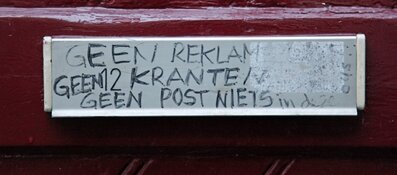 GEEN REKLAM
GEEN 12 KRANTEN
GEEN POST NIETS in deze